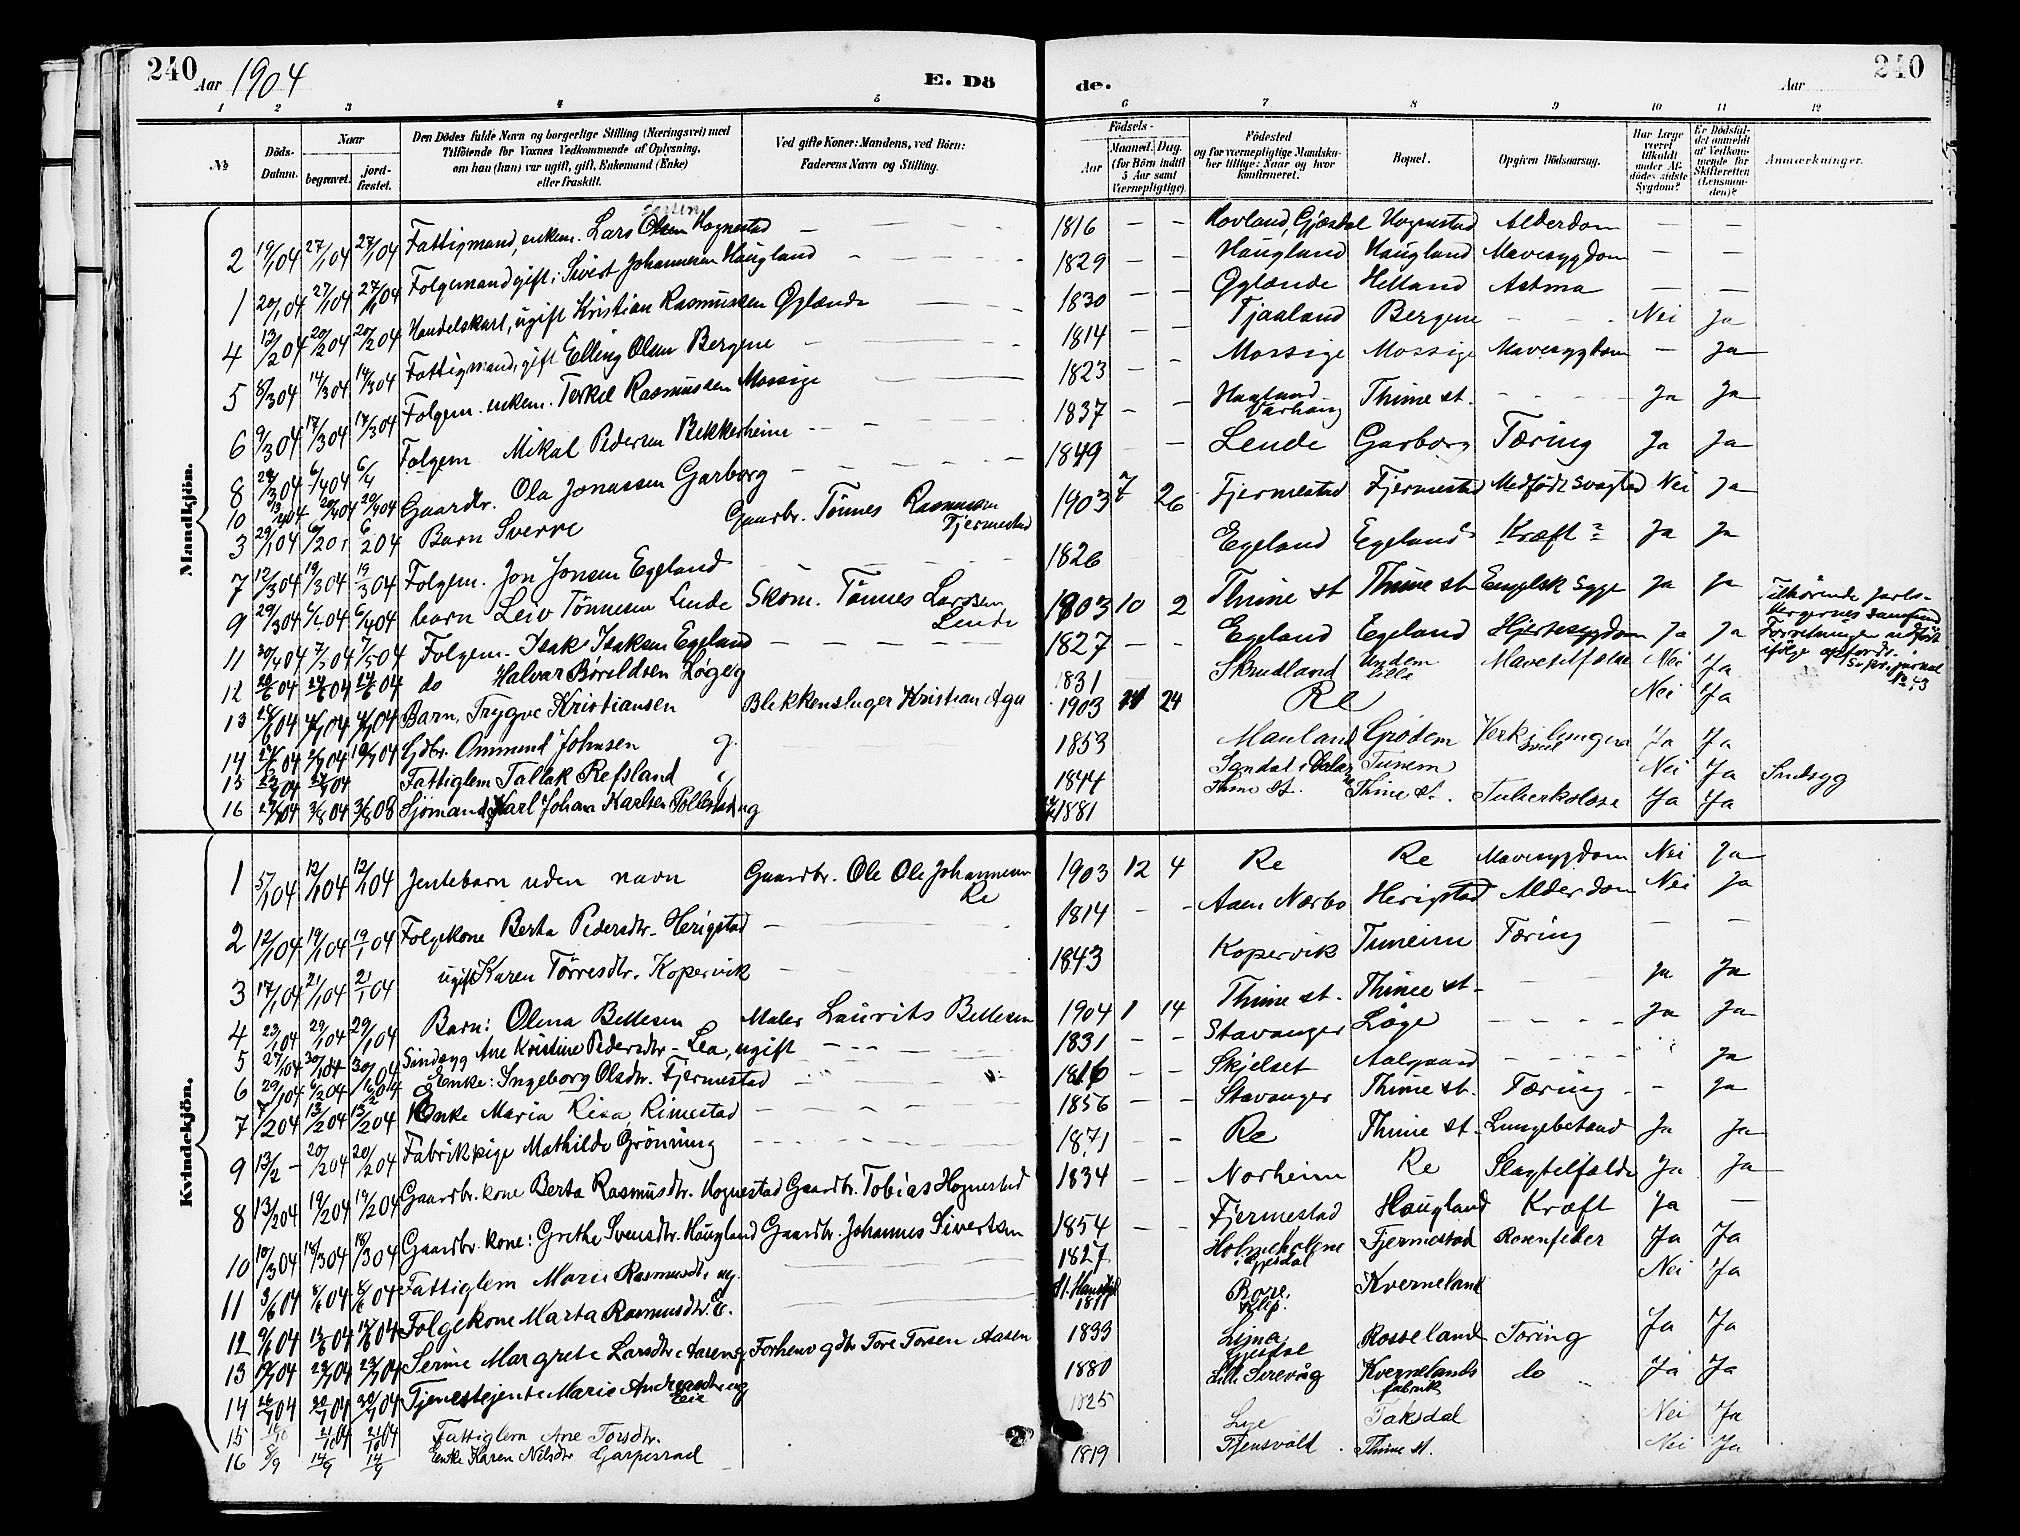 240 Aar 1904 E. Dö de. Aar 240
1 2 3 4 5 6 7 8 9 10 11 12
№ Döds-Datum. Naar begravet. jordfæstet. Den Dödes fulde Navn og borgerlige Stilling (Næringsvei) med Tilföiende for Voxnes Vedkommende af Oplysning, om han (hun) var ugift, gift, Enkemand (Enke) eller fraskilt. Ved gifte Koner: Mandens, ved Börn: Faderens Navn og Stilling. Födsels- Aar Maaned. Dag. (for Börn indtil 5 Aar samt Værnepligtige). Födested og for værnepligtige Mandskaber tillige: Naar og hvor konfirmeret. Bopæl. Opgiven Dödsaarsag. Har Læge været tilkaldt under Afdödes sidste Sygdom? Er Dödsfaldet anmeldt af Vedkommende for Skifteretten (Lensmanden)? Anmærkninger.
Mandkjön.
2 19/1 04 27/1 04 27/1 04 Fattigmand, enkem. Lars Olsen Hognestad — 1816 — — Hovland, Gjæsdal Hognestad Alderdom — —
1 20/1 04 27/1 04 27/1 04 Folgemand gift: Sivert Johannesen Haugland — 1829 — — Haugland Haugland Mavesygdom — —
4 13/2 04 20/2 04 20/2 04 Handelskarl, ugift Kristian Rasmussen Öglænde — 1830 — — Öglænde Helland Astma — —
5 8/3 04 14/3 04 14/3 04 Fattigmand, gift Elling Olsen Bergene — 1814 — — Tjaaland Bergene — Nei Ja
6 9/3 04 17/3 04 17/3 04 Folgem. enkem. Terkel Rasmussen Mossige — 1823 — — Mossige Mossige Mavesygdom — Ja
8 29/3 04 6/4 04 6/4 Folgem Mikal Pedersen Bekkerheim — 1837 — — Haaland Varhaug Thime st. — Ja Ja
10 20/4 04 20/4 04 Gaardbr. Ola Jonassen Garborg — 1849 — Lende Garborg Tæring Ja Ja
3 29/1 04 6/2 04 6/2 04 Barn Sverre Gaardbr. Tönnes Rasmussen Fjermestad 1903 7 26 Fjermestad Fjermestad Medfödt svaghed Nei Ja
7 12/3 04 19/3 04 19/3 04 Folgem. Jon Jonsen Egeland — 1826 Egeland Egeland Kræft Ja Ja
9 29/3 04 6/4 04 6/4 04 barn Leiv Tönnesen Lende Skom. Tönnes Larsen Lende 1903 10 2 Thime st Thime st Engelsk syge Ja Ja Tilhörende
11 30/4 04 7/5 04 7/5 04 Folgem. Isak Isaksen Egeland — 1827 — — Egeland Egeland Hjertesygdom Ja Ja
12 20/6 04 24/6 04 24/6 04 do Halvar Böreldsen Löge 1831 Skrudland Undem lille Mavetilfælde Nei Ja
13 28/6 04 4/7 04 4/7 04 Barn, Trygve Kristiansen Blikkenslager Kristian Aga 1903 11 24 Re Nei Ja
14 04 04 04 Gdbr. Ommund Johnsen g. 1853 Mauland Grödem Ja Ja
15 04 04 Fattiglem Tallak Refsland g 1844 Sogndal i Dalar Tunem Nei Ja Sindsyg
16 27/7 04 3/8 04 3/8 08 Sjömand Karl Johan Karlsen Pollestad ug 1881 Thime st. Thime st. Tuberkolose Ja Ja
Kvindekjön.
1 5/1 04 12/1 04 12/1 04 Jentebarn uden navn Gaardbr. Ole Ole Johannesen Re 1903 12 4 Re Re Mavesygdom Nei Ja
2 12/1 04 19/1 04 19/1 04 Folgekone Berta Pedersdtr. Herigstad — 1814 — — Aaen Nærbö Herigstad Alderdom Nei Ja
3 17/1 04 21/1 04 21/1 04 ugift Karen Törresdtr. Kopervik — 1843 Kopervik Tuneim Tæring — —
4 23/1 04 29/1 04 29/1 04 Barn: Olena Bellesen Maler Laurits Bellesen 1904 1 14 Thime st. Thime st. — Ja Ja
5 27/1 04 30/1 04 30/1 04 Sindsyg Ane Kristine Pedersdtr - Lea, ugift — 1831 — — Stavanger Löge — Ja Ja
6 29/1 04 6/2 04 6/2 04 Enke: Ingeborg Olsdtr. Fjermestad — 1816 — — Skjelset Aalgaard — Ja
7 7/2 04 13/2 04 13/2 04 Enke Maria Risa, Rimestad — 1856 — — Stavanger Thime st. Tæring - Ja
9 13/2 — 20/2 04 20/2 04 Fabrikkpige Mathilde Grönning — 1871 — — Re Thime st. Lungebetænd Ja Ja
8 13/2 04 19/2 04 19/2 04 Gaardbr. kone Berta Rasmusdtr. Hognestad Gaardbr. Tobias Hognestad 1834 — — Norheim Re Slagtilfælde Ja Ja
10 10/3 04 18/3 04 18/3 04 Gaardbr. kone: Grethe Svensdtr. Haugland Gaardbr. Johannes Sivertsen 1854 — — Fjermestad Haugland Kræft Ja —
11 3/6 04 8/6 04 8/6 04 Fattiglem Mari Rasmusdtr. ug. — 1827 Holmeholene i Gjesdal Fjermestad Rosenfeber Ja Ja
12 9/6 04 13/6 04 13/6 04 Folgekone Marta Rasmusdtr. E. — 1811 Bore. Klep. Kverneland Nei Ja
13 04 23/7 04 23/7 04 Serine Margrete Larsdtr. Aasen g. Forhenv gdbr Tore Torsen Aasen 1833 Lima Gjesdal Rosseland Töring Ja Ja
14 04 04 04 Tjenestejente Marie Andreasdtr ug 1880 Sirevåg Kvernelands fabrik do Ja Ja
15 21/10 04 21/10 04 Fattiglem Ane Torsdtr. 1825 Lye Taksdal Nei Ja
16 8/9 14/9 14/9 Enke Karen Nilsdtr Garpestad 1819 Tjensvold Thime st. Nei Ja